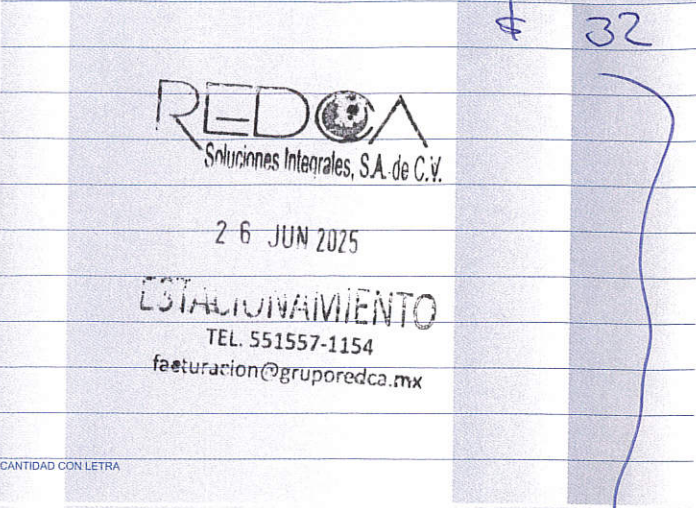 $ 32
REDCA
Soluciones Integrales, S.A. de C.V.
26 JUN 2025
ESTACIONAMIENTO
TEL. 551557-1154
facturacion@gruporedca.mx
CANTIDAD CON LETRA